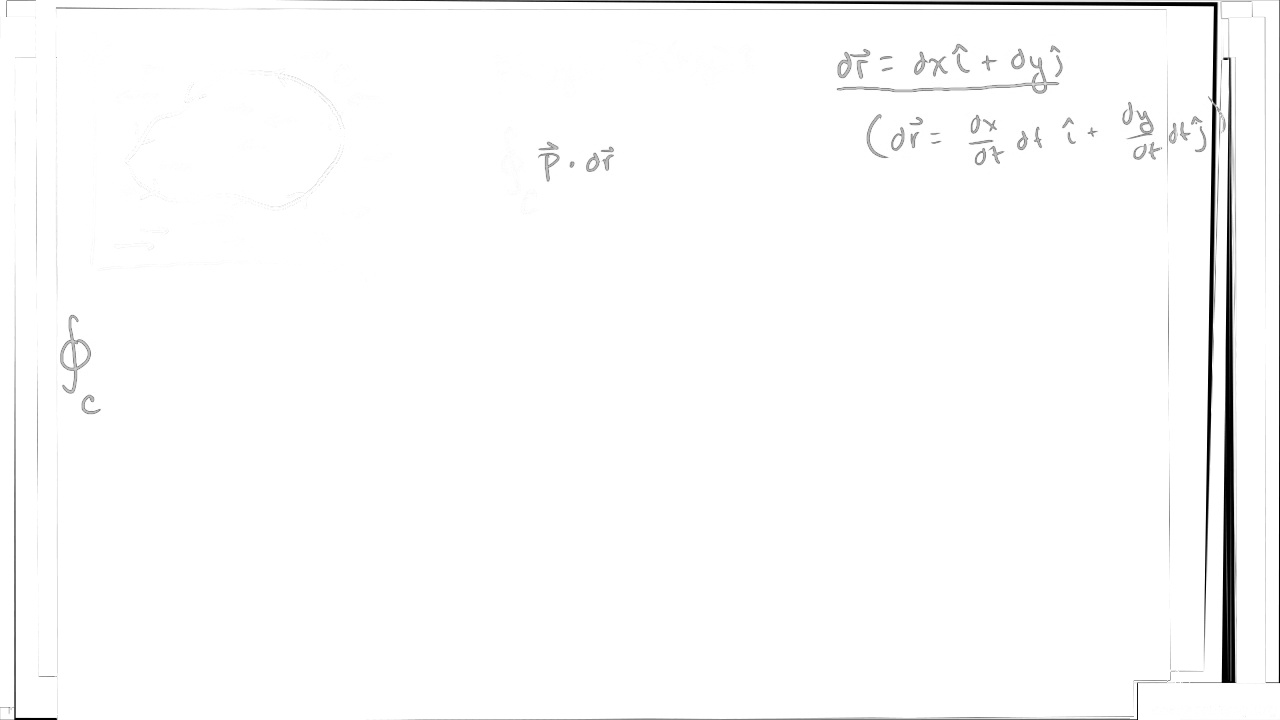 dr⃗ = dx î + dy ĵ
(dr⃗ = dx/dt dt î + dy/dt dt ĵ)
p⃗ · dr⃗
∮
c